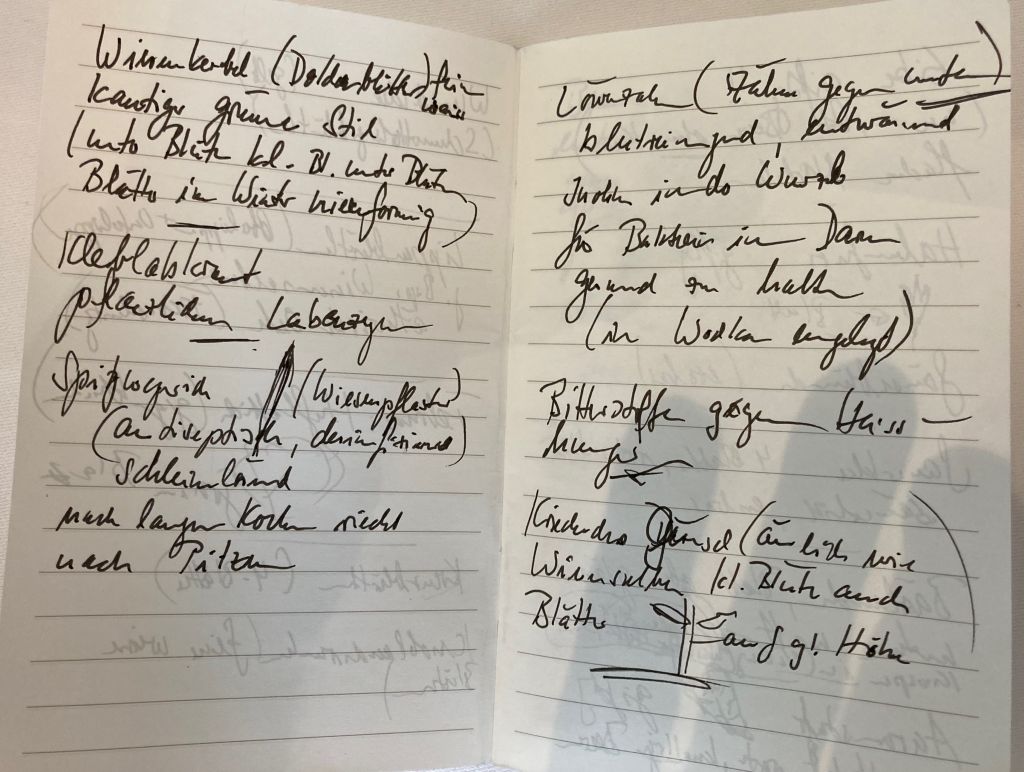 Wiesenkerbel (Doldenblütler) fein
weiss
kantiger grüner Stil
(unter Blüte kl. Bl. unter Blüten
Blätter im Winter nierenförmig)
Klebblabkraut
pflanzlichem Labenzym
Spitzwegerich (Wiesenpflaster)
(antiseptisch, desinfizierend)
schleimlösend
nach langem Kochen riecht
nach Pilzen
Löwenzahn (Zähne gegen unten)
blutreinigend, entwässernd
in der Wurzel
für Bakterien im Darm
gesund zu halten
(in Wodka eingelegt)
Bitterstoffe gegen Heiss-
hunger
Kriechender Günsel (änlich wie
Wiesensalbei kl. Blüte auch
Blätter
auf gl. Höhe